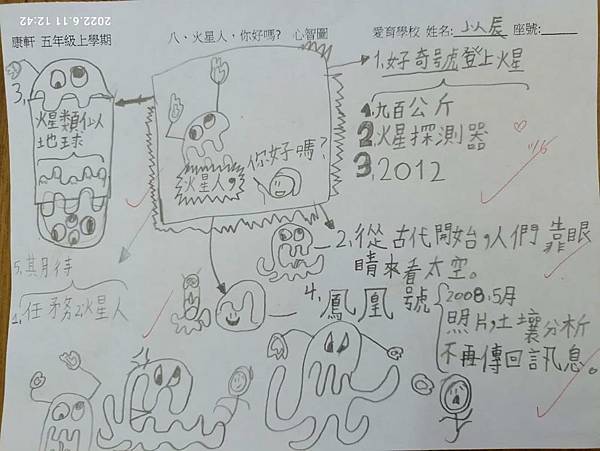 2022.6.11 12:42
康軒 五年級上學期
八、火星人，你好嗎? 心智圖
愛育學校 姓名: 小人辰 座號:
1,好奇號登上火星
1.九百公斤
2.火星探測器
3.2012
3.
火星類似
地球
火星人,
你好嗎?
2,從古代開始,人們靠眼
睛來看太空。
4,鳳凰號
2008.5月
照片,土壤分析
不再傳回訊息。
5.其月待
1.任務2火星人